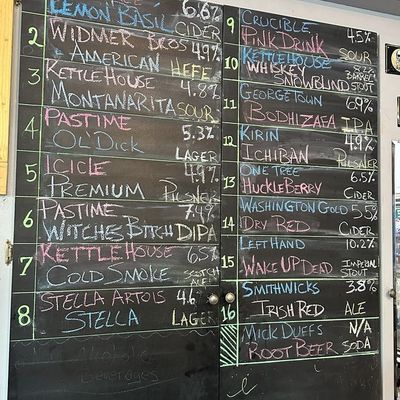 Lemon Basil 6.6%
Cider
2 Widmer Bros 4.9%
American Hefe
3 KettleHouse 4.8%
Montanarita Sour
4 Pastime 5.3%
Ol' Dick
Lager
5 Icicle 4.9%
Premium Pilsner
6 Pastime 7.4%
Witches Bitch DIPA
7 KettleHouse 6.5%
Cold Smoke Scotch Ale
8 Stella Artois 4.6%
Stella Lager
9 Crucible 4.5%
Pink Drink Sour
10 KettleHouse
Whiskey Barrel
Snowblind Stout
11 Georgetown 6.9%
Bodhizafa IPA
12 Kirin 4.9%
Ichiban Pilsner
13 One Tree 6.5%
Huckleberry Cider
14 Washington Gold 5.5%
Dry Red Cider
15 Left Hand 10.2%
Wake Up Dead Imperial Stout
16 Smithwicks 3.8%
Irish Red Ale
Mick Duffs N/A
Root Beer Soda
Beverages